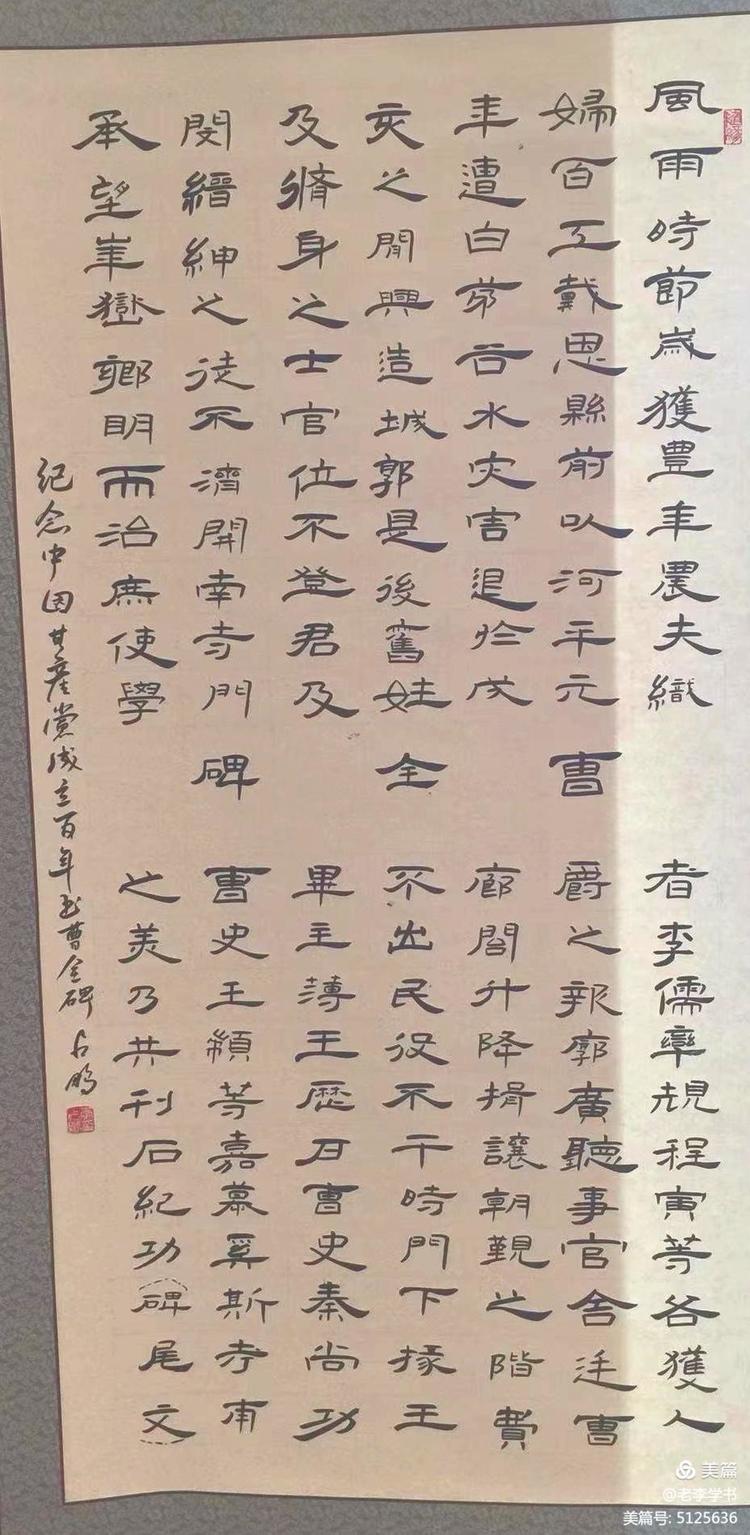 風雨時節歲獲豐年農夫織
婦百工戴恩縣前以河平元
年遭白茅谷水灾害退於戌
亥之間興造城郭是後舊姓
及脩身之士官位不登君及
閔縉紳之徒不濟開南寺門
承望華嶽鄉明而治庶使學
曹全碑
者李儒欒規程寅等各獲人
爵之報廓廣聽事官舍廷曹
廊閤升降揖讓朝覲之階費
不出民役不干時門下掾王
畢主薄王歷日曹史秦尚功
曹史王顓等嘉慕奚斯考甫
之美乃共刊石紀功(碑尾文)
纪念中国共產党成立百年书曹全碑
美篇
@老李学书
美篇号: 5125636